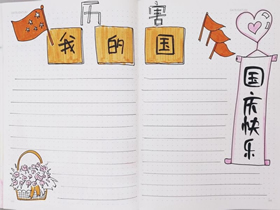 历害
我的国
国庆快乐